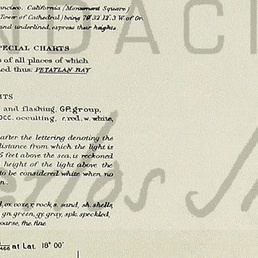 ncisco. California (Monument Square)
Tower of Cathedral) being 70° 32' 12".3 W. of Gr.
and underlined, express their heights
PECIAL CHARTS
s of all places of which
ed thus: PETATLAN BAY
TS
and flashing, GP. group,
OCC. occulting, r. red. w. white,
after the lettering denoting the
distance from which the light is
5 feet above the sea, is reckoned
height of the light above the
to be considered white when no
n.
oz. ooze, r. rock, s. sand, sh. shells,
gn. green, gy. gray, spk. speckled,
oarse, fne. fine
at Lat. 18° 00'